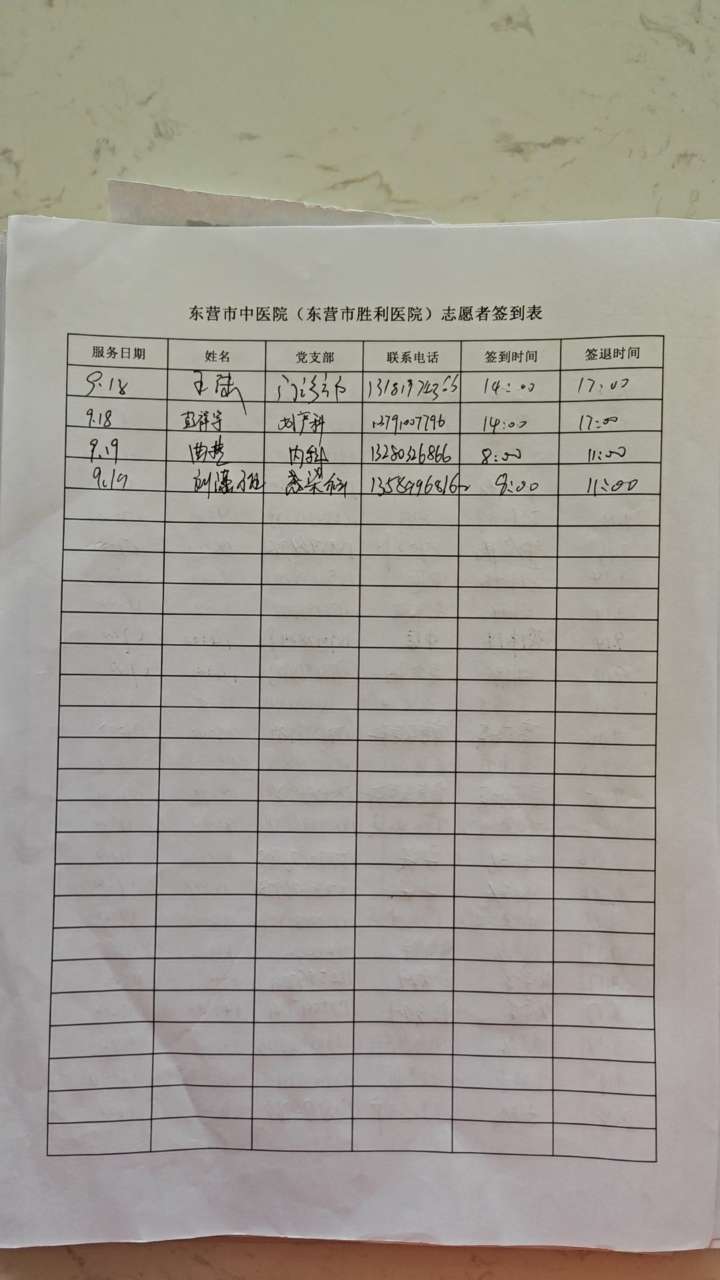 东营市中医院（东营市胜利医院）志愿者签到表
服务日期 姓名 党支部 联系电话 签到时间 签退时间
9.18 王陆 门诊 14:00 17:00
9.18 彭祥宇 妇产科 14:00 17:00
9.19 曲 内科 13280326866 8:00 11:00
9.19 刘 感染科 8:00 11:00